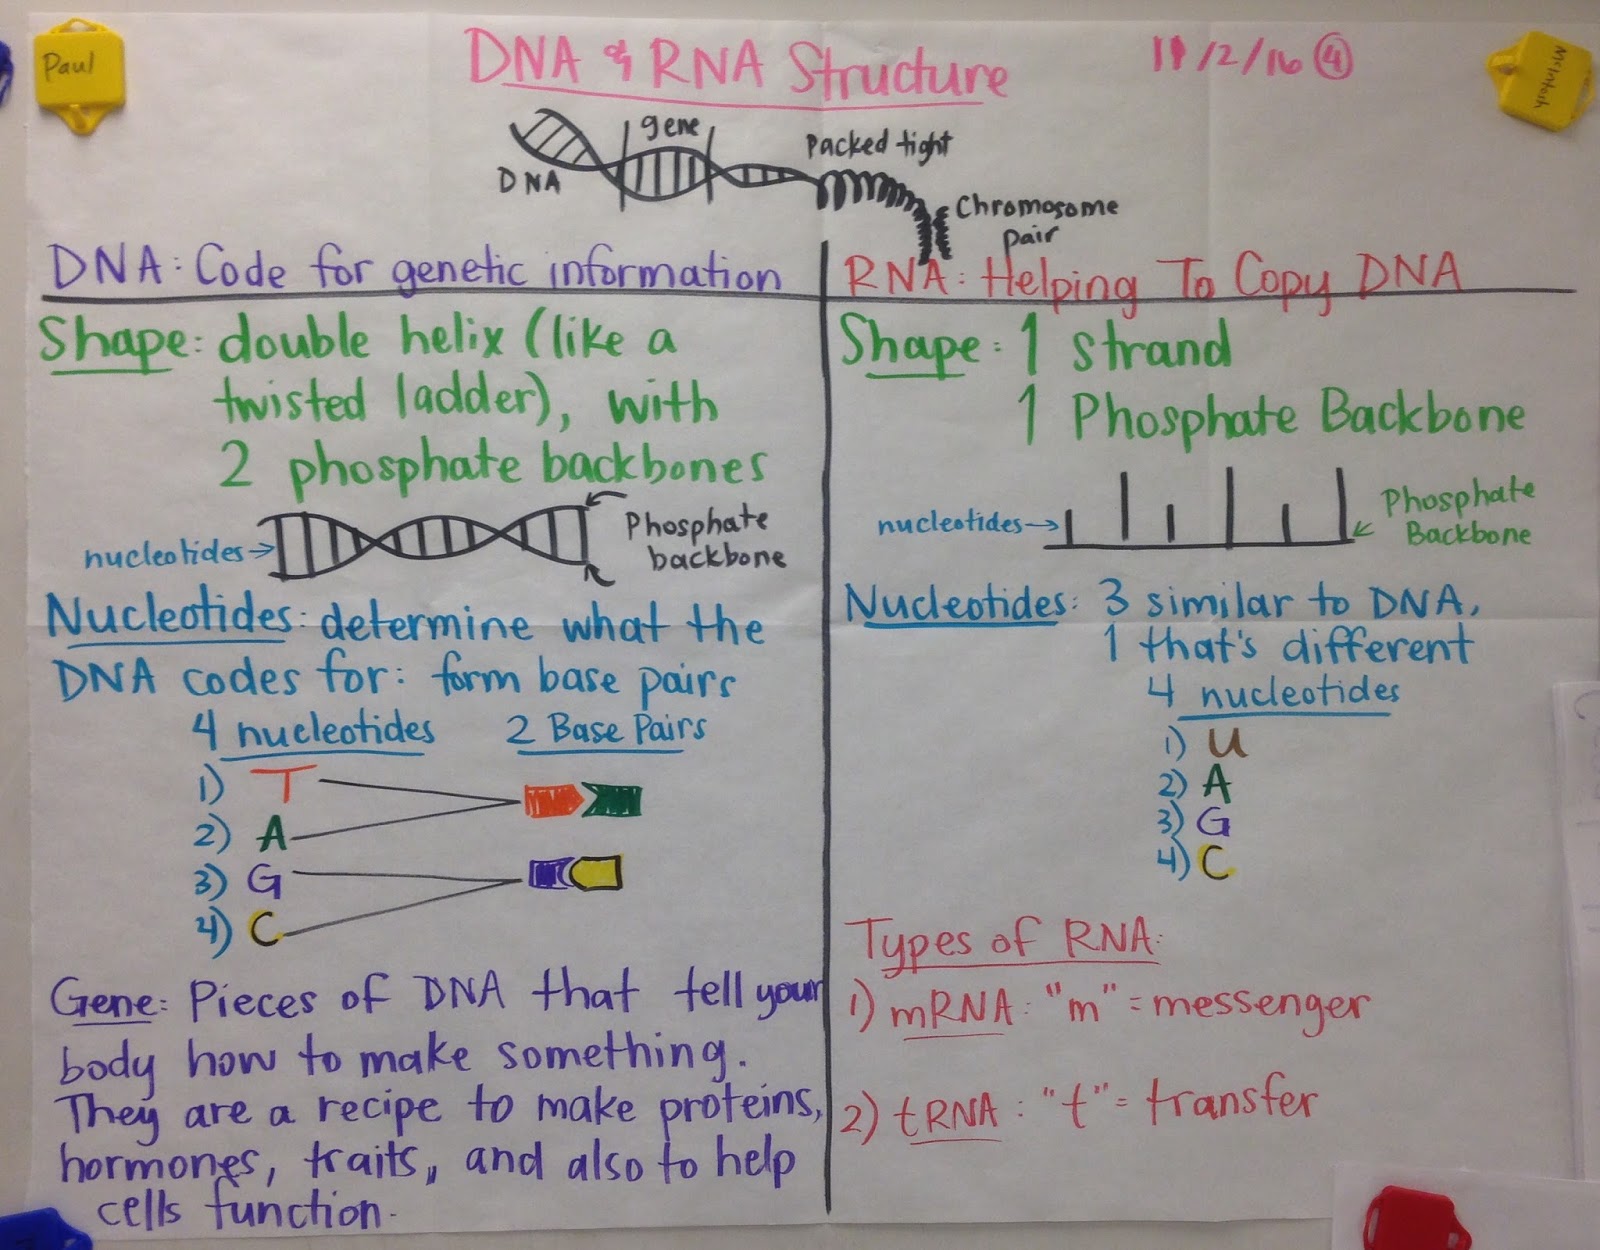 Paul
DNA & RNA Structure
11/2/16 4
McIntosh
gene
DNA
Packed tight
Chromosome
pair
DNA: Code for genetic information
Shape: double helix (like a
twisted ladder), with
2 phosphate backbones
nucleotides
Phosphate
backbone
Nucleotides: determine what the
DNA codes for: form base pairs
4 nucleotides 2 Base Pairs
1) T
2) A
3) G
4) C
Gene: Pieces of DNA that tell your
body how to make something.
They are a recipe to make proteins,
hormones, traits, and also to help
cells function.
RNA: Helping To Copy DNA
Shape: 1 strand
1 Phosphate Backbone
nucleotides
Phosphate
Backbone
Nucleotides: 3 similar to DNA,
1 that's different
4 nucleotides
1) U
2) A
3) G
4) C
Types of RNA:
1) mRNA: "m" = messenger
2) tRNA: "t" = transfer